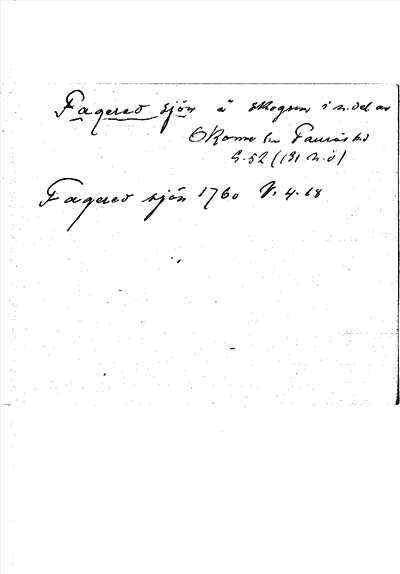 Fagered sjön å skogen i n. del av
Okome sn Faurås hd
G. 52 (191 N.ö)
Fagered sjön 1760 V. 4. 68